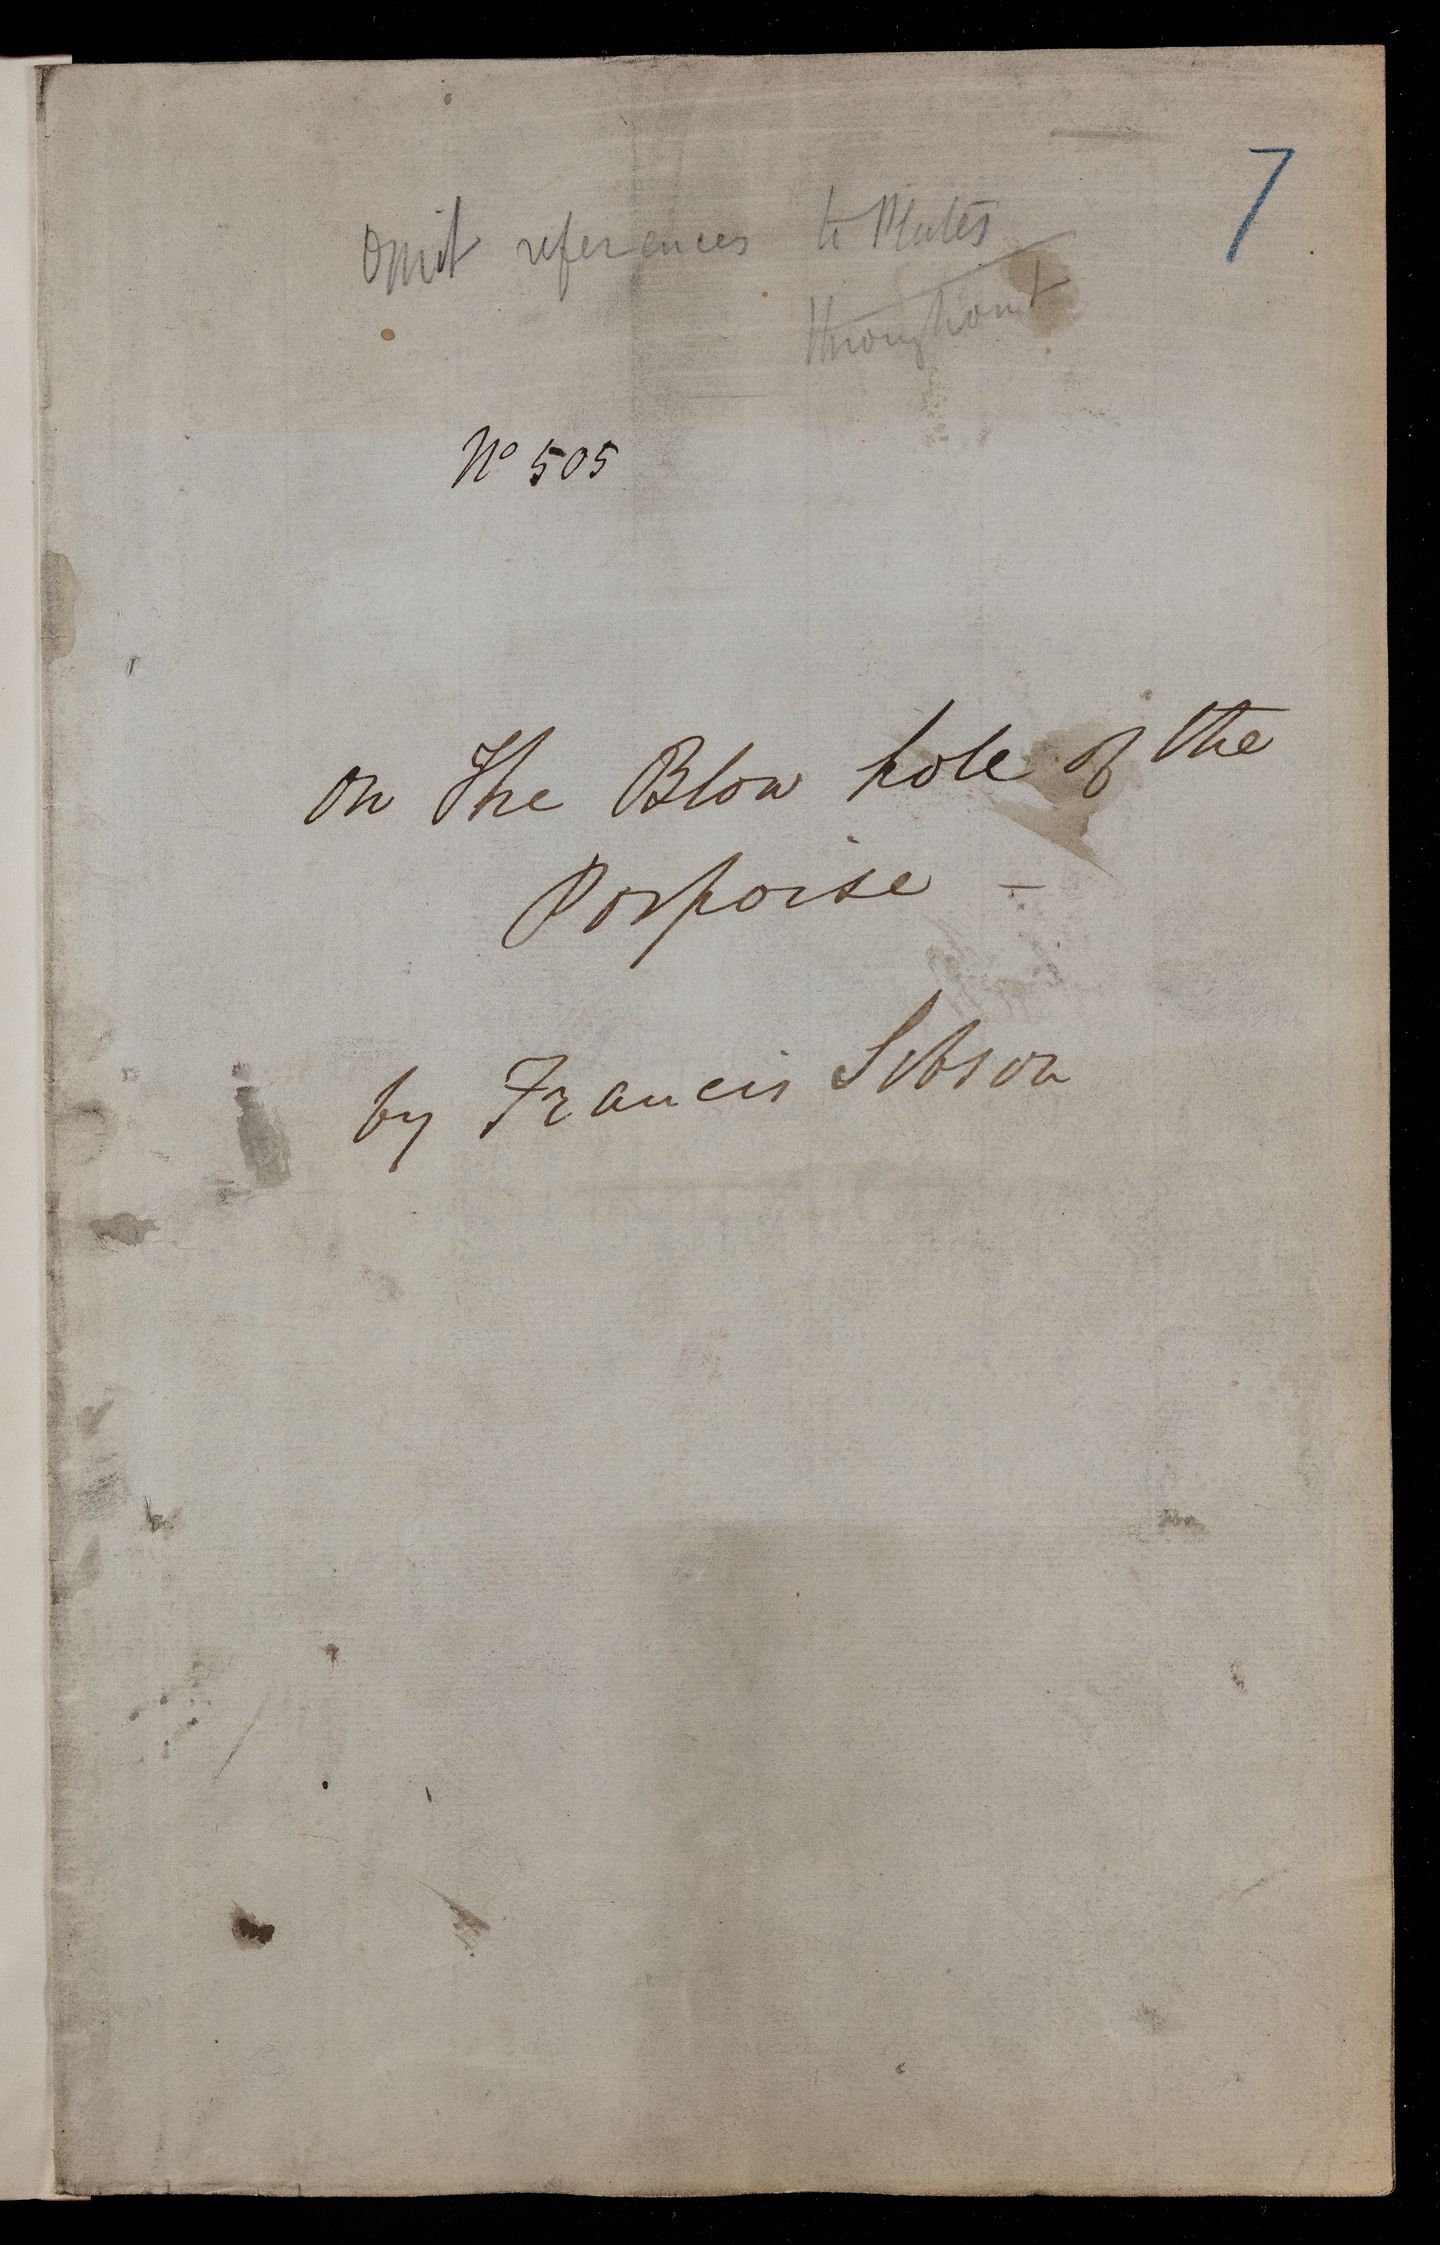 7
Omit references to Plates
throughout
No 505
On The Blow hole of the
Porpoise –
by Francis Sibson